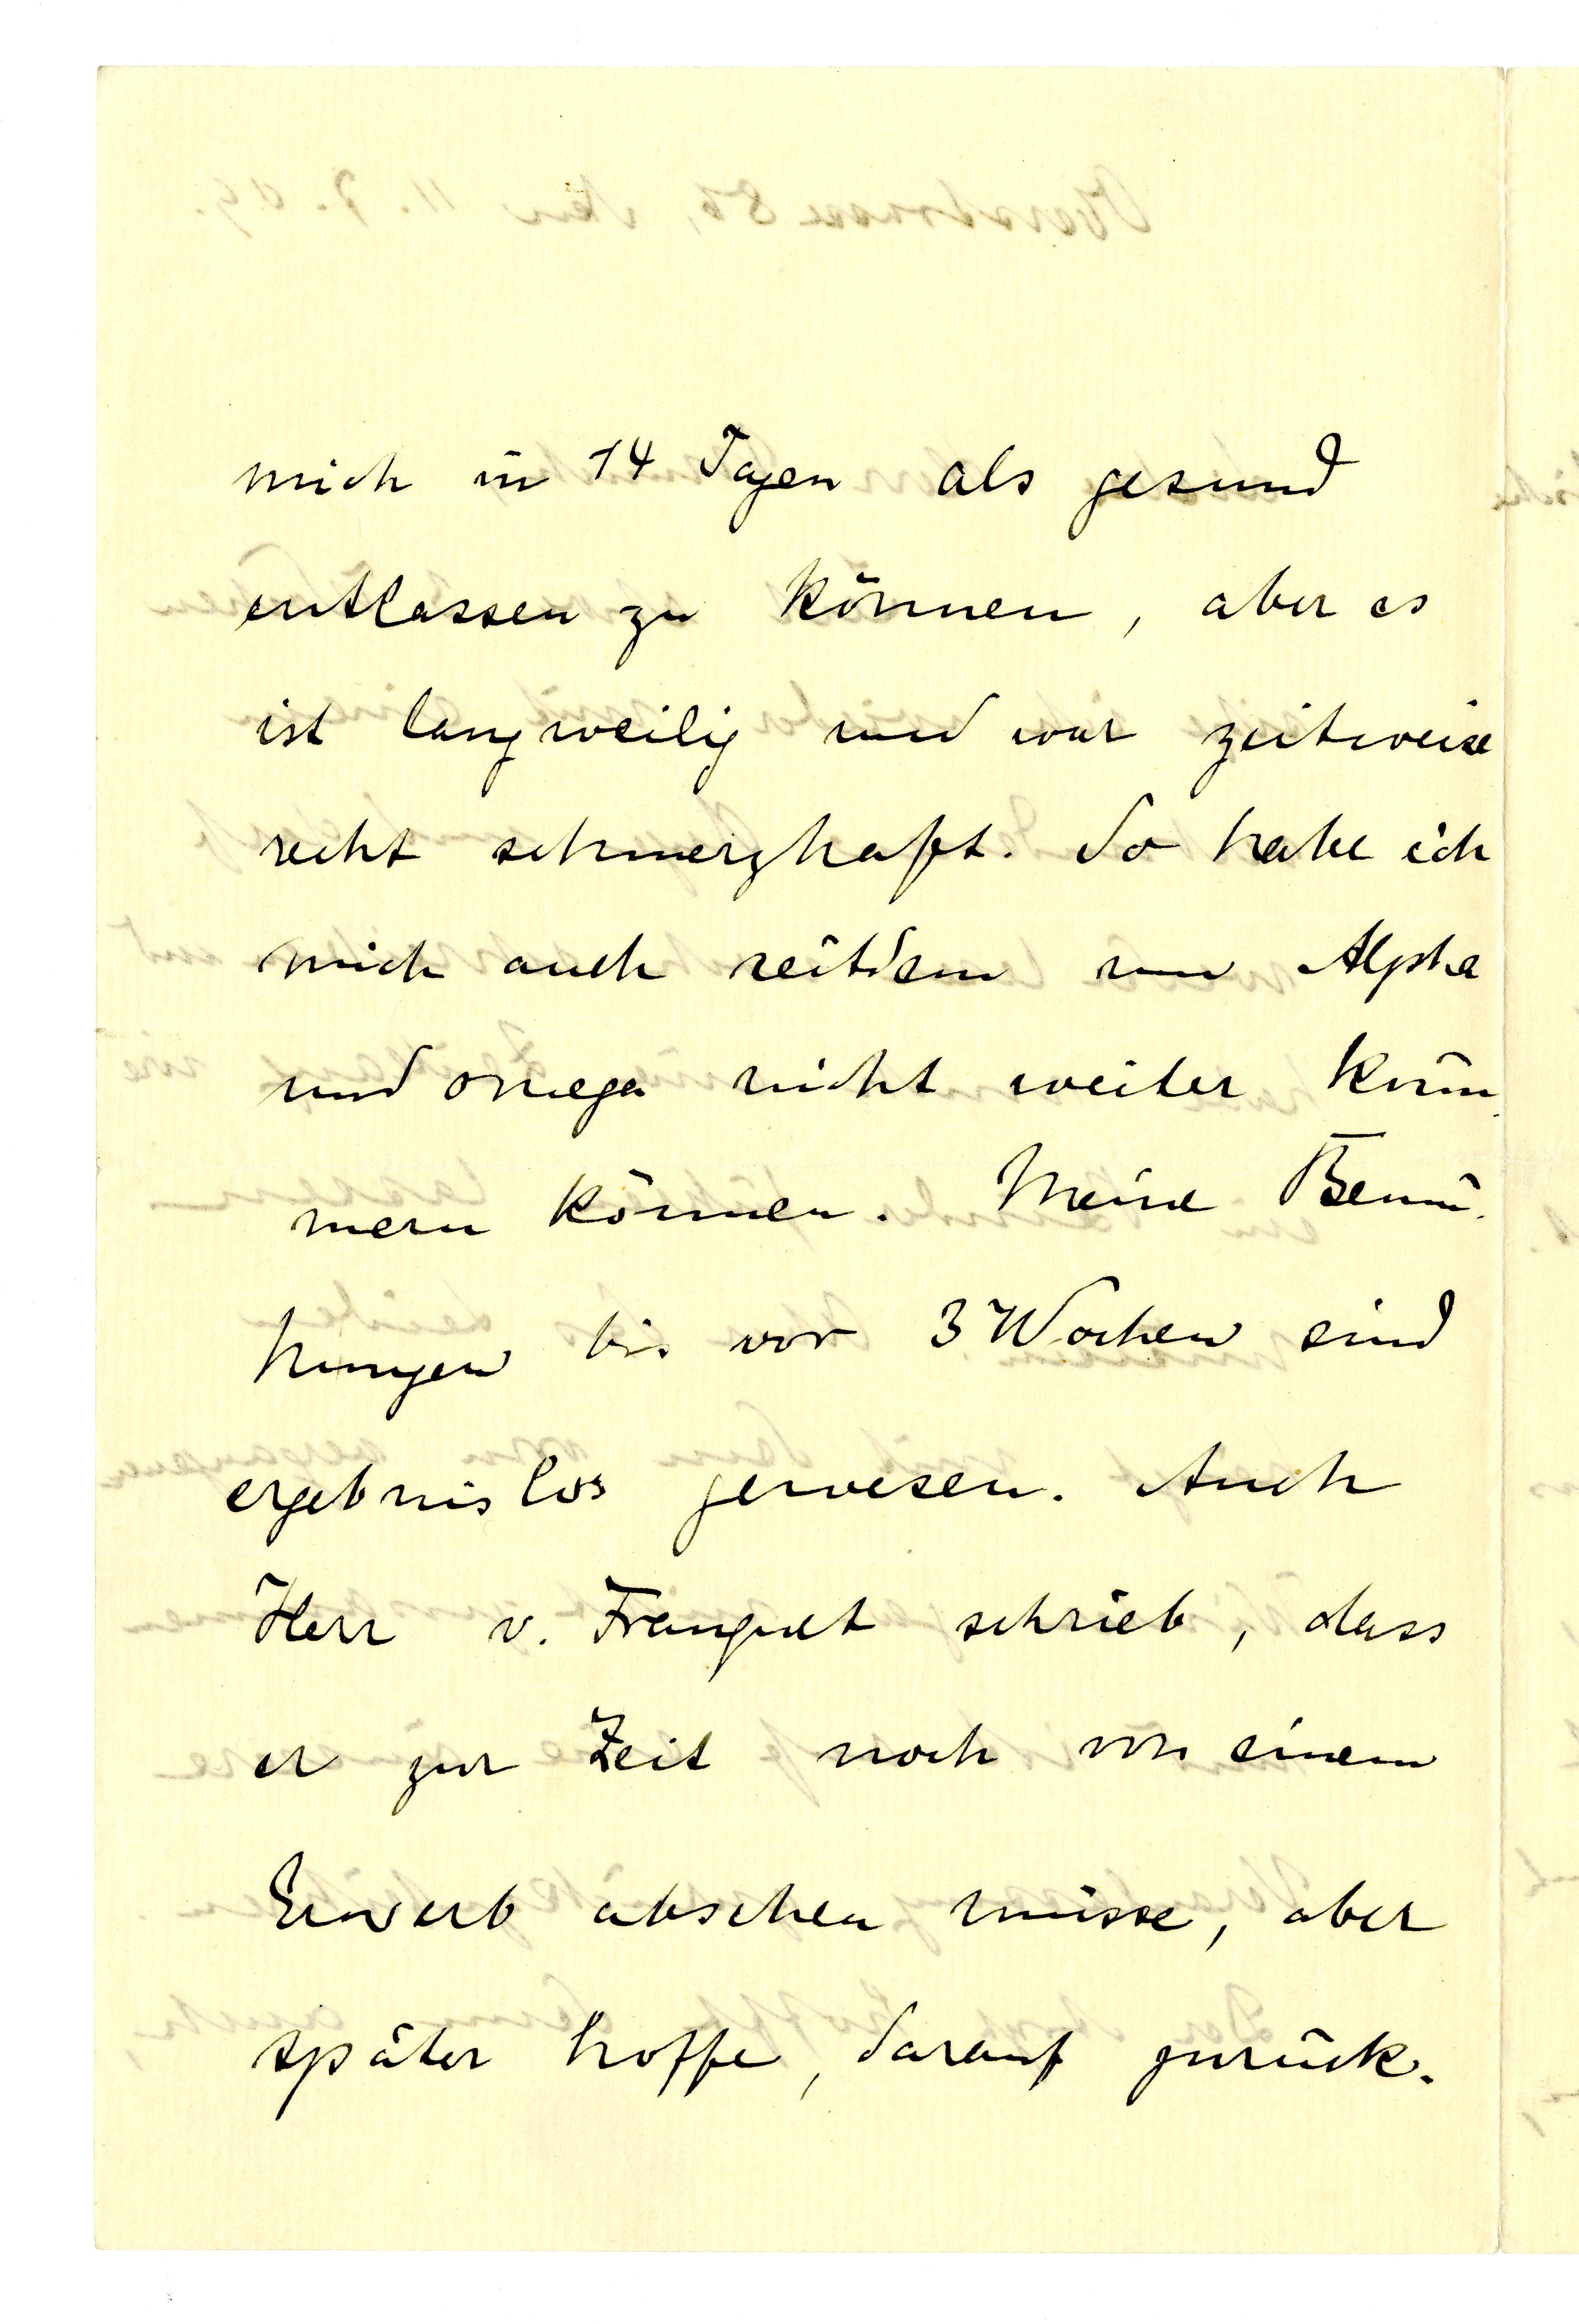 mich in 14 Tagen als gesund
entlassen zu können, aber es
ist langweilig und war zeitweise
recht schmerzhaft. So habe ich
mich auch seitdem um Alpha
und omega nicht weiter küm-
mern können. Meine Bemü-
hungen bis vor 3 Wochen sind
ergebnislos gewesen. Auch
Herr v. Franquet schrieb, dass
er zur Zeit noch von einem
Erwerb absehen müsse, aber
später hoffe, darauf zurück-